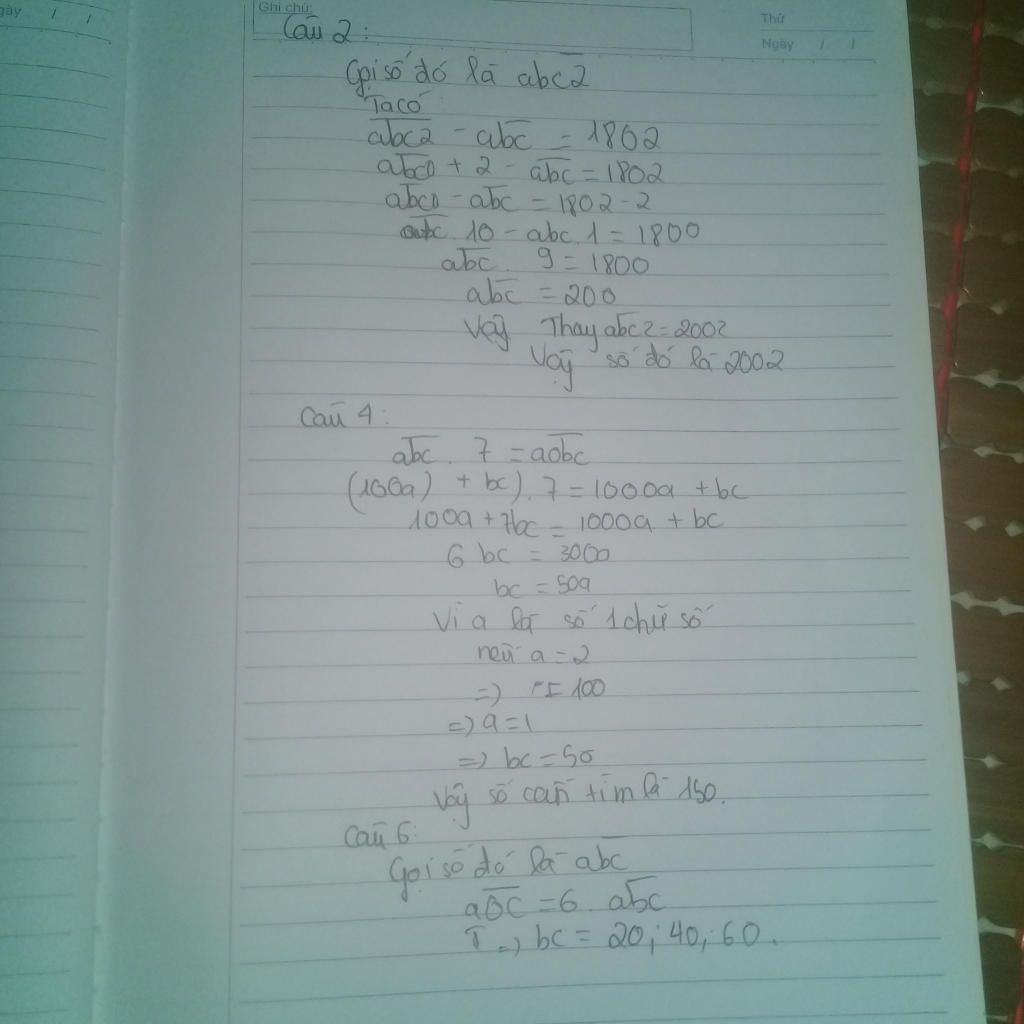 gày / /
Ghi chú:
Thứ
Ngày / /
Câu 2:
Gọi số đó là abc2
Ta có
abc2 - abc = 1802
abc0 + 2 - abc = 1802
abc0 - abc = 1802 - 2
abc. 10 - abc. 1 = 1800
abc. 9 = 1800
abc = 200
Vậy Thay abc2 = 2002
Vậy số đó là 2002
Câu 4:
abc. 7 = a0bc
(100a) + bc). 7 = 1000a + bc
100a + 7bc = 1000a + bc
6 bc = 300a
bc = 50a
Vì a là số 1 chữ số
nếu a = 2
=> = 100
=> a = 1
=> bc = 50
Vậy số cần tìm là 150.
Câu 6:
Gọi số đó là abc
a0c = 6. abc
=> bc = 20; 40; 60.